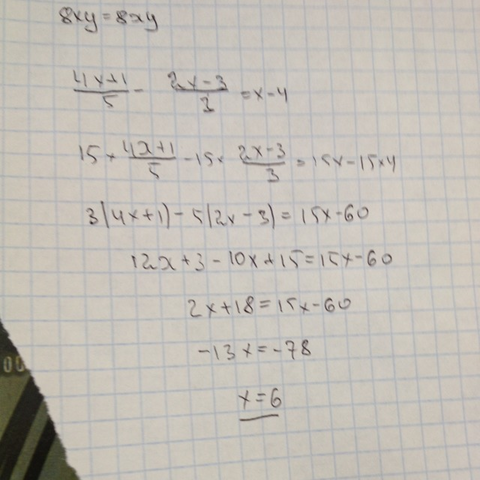 8xy=8xy
4x+1/5 - 2x-3/3 = x-4
15 × 4x+1/5 - 15 × 2x-3/3 = 15x-15×4
3(4x+1)-5(2x-3)=15x-60
12x+3-10x+15=15x-60
2x+18=15x-60
-13x=-78
x=6